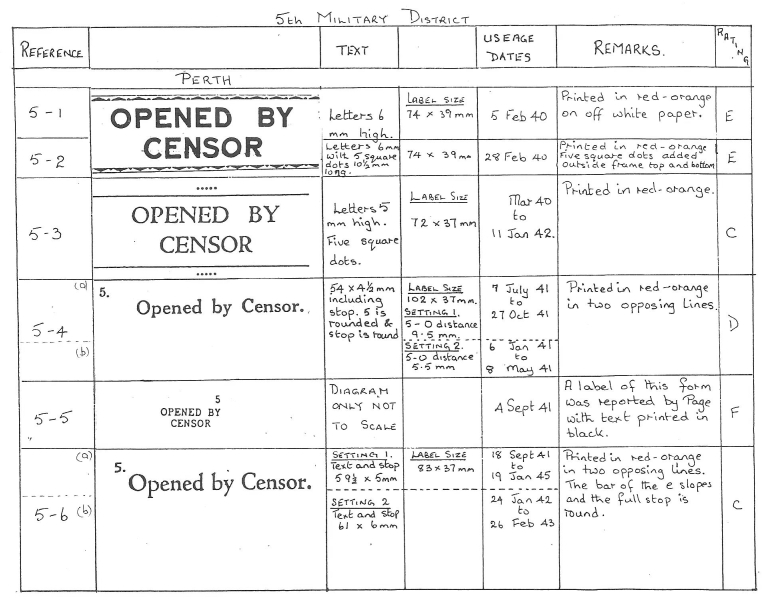 5th MILITARY DISTRICT
REFERENCE
TEXT
USEAGE
DATES
REMARKS.
RATING
PERTH
5-1
OPENED BY
CENSOR
Letters 6
mm high.
LABEL SIZE
74 x 39mm
5 Feb 40
Printed in red-orange
on off white paper.
E
5-2
Letters 6mm
wilt 5 square
dots 10½mm
long.
74 x 39mm
28 Feb 40
Printed in red-orange
Five square dots added
outside frame top and bottom
E
5-3
OPENED BY
CENSOR
Letters 5
mm high.
Five square
dots.
LABEL SIZE
72 x 37mm
Mar 40
to
11 Jan 42.
Printed in red-orange.
C
(a)
5-4
(b)
5.
Opened by Censor.
54 x 4½mm
including
stop. 5 is
rounded &
stop is round
LABEL SIZE
102 x 37mm.
SETTING 1.
5-O distance
9.5mm.
SETTING 2.
5-O distance
5.5mm
7 July 41
to
27 Oct 41
6 Jan 41
to
8 May 41
Printed in red-orange
in two opposing lines.
D
5-5
5
OPENED BY
CENSOR
DIAGRAM
ONLY NOT
TO SCALE
4 Sept 41
A label of this form
was reported by Page
with text printed in
black.
F
(a)
5-6 (b)
5.
Opened by Censor.
SETTING 1.
Text and stop
59½ x 5mm
SETTING 2
Text and stop
61 x 6mm
LABEL SIZE
83 x 37mm
18 Sept 41
to
19 Jan 45
24 Jan 42
to
26 Feb 43
Printed in red-orange
in two opposing lines.
The bar of the e slopes
and the full stop is
round.
C